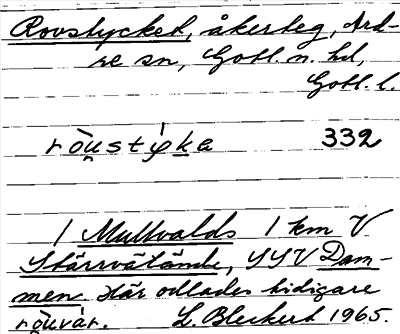 Rovstycket, åkerteg, Ard-
re sn, Gotl. n. hd,
Gotl. l.
332
1 Mullvalds 1 km V
Stärrvätände, SSV Dam-
men. Här odlades tidigare
L. Bleckert 1965.